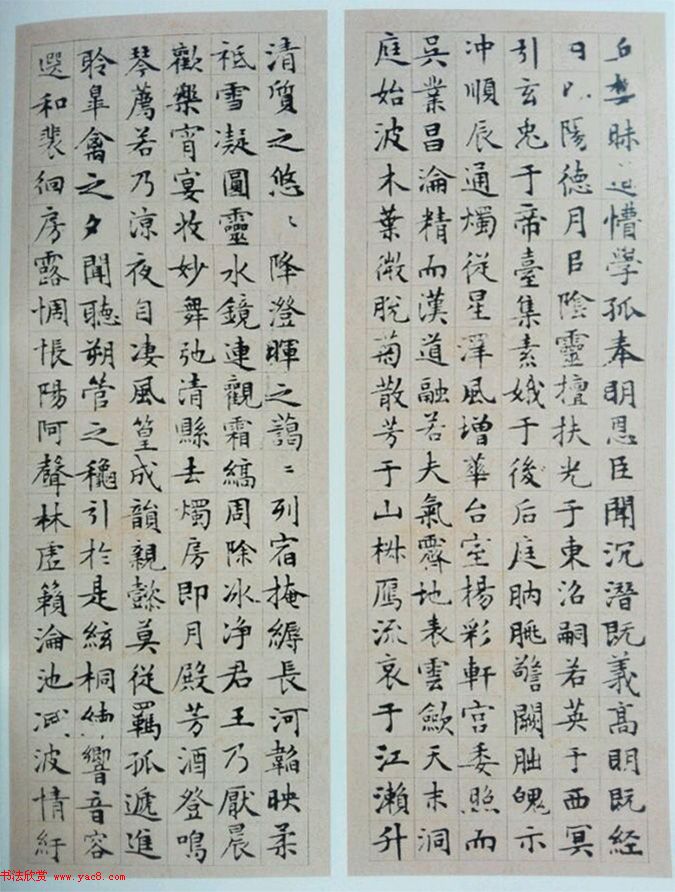 丘樊昧道懵學孤奉明恩臣聞沉潛既義高明既經
日以陽德月臣陰靈擅扶光于東沼嗣若英于西冥
引玄兔于帝臺集素娥于後后庭肭朓警闕朏魄示
冲順辰通燭從星澤風增華台室楊彩軒宮委照而
吳業昌淪精而漢道融若夫氣霽地表雲歛天末洞
庭始波木葉微脫菊散芳于山椒鴈流哀于江瀨升
清質之悠〻降澄暉之藹〻列宿掩縟長河韜映柔
祇雪凝圓靈水鏡連觀霜縞周除冰净君王乃厭晨
歡樂宵宴收妙舞弛清縣去燭房即月殿芳酒登鳴
琴薦若乃涼夜自凄風篁成韻親懿莫從羈孤遞進
聆皋禽之夕聞聽朔管之穐引於是絃桐響音容
選和裴徊房露惆悵陽阿聲林虛籟淪池滅波情紆
书法欣赏 www.yac8.com